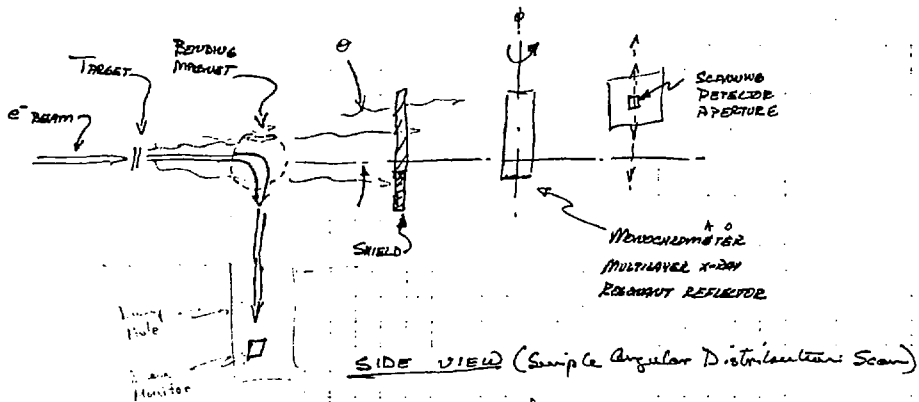 θ
φ
BENDING
MAGNET
TARGET
e⁻ BEAM
SCANNING
DETECTOR
APERTURE
SHIELD
A O
MONOCHROMETER
MULTILAYER X-RAY
RESONANT REFLECTOR
Hole
Monitor
SIDE VIEW (Simple Angular Distribution Scan)